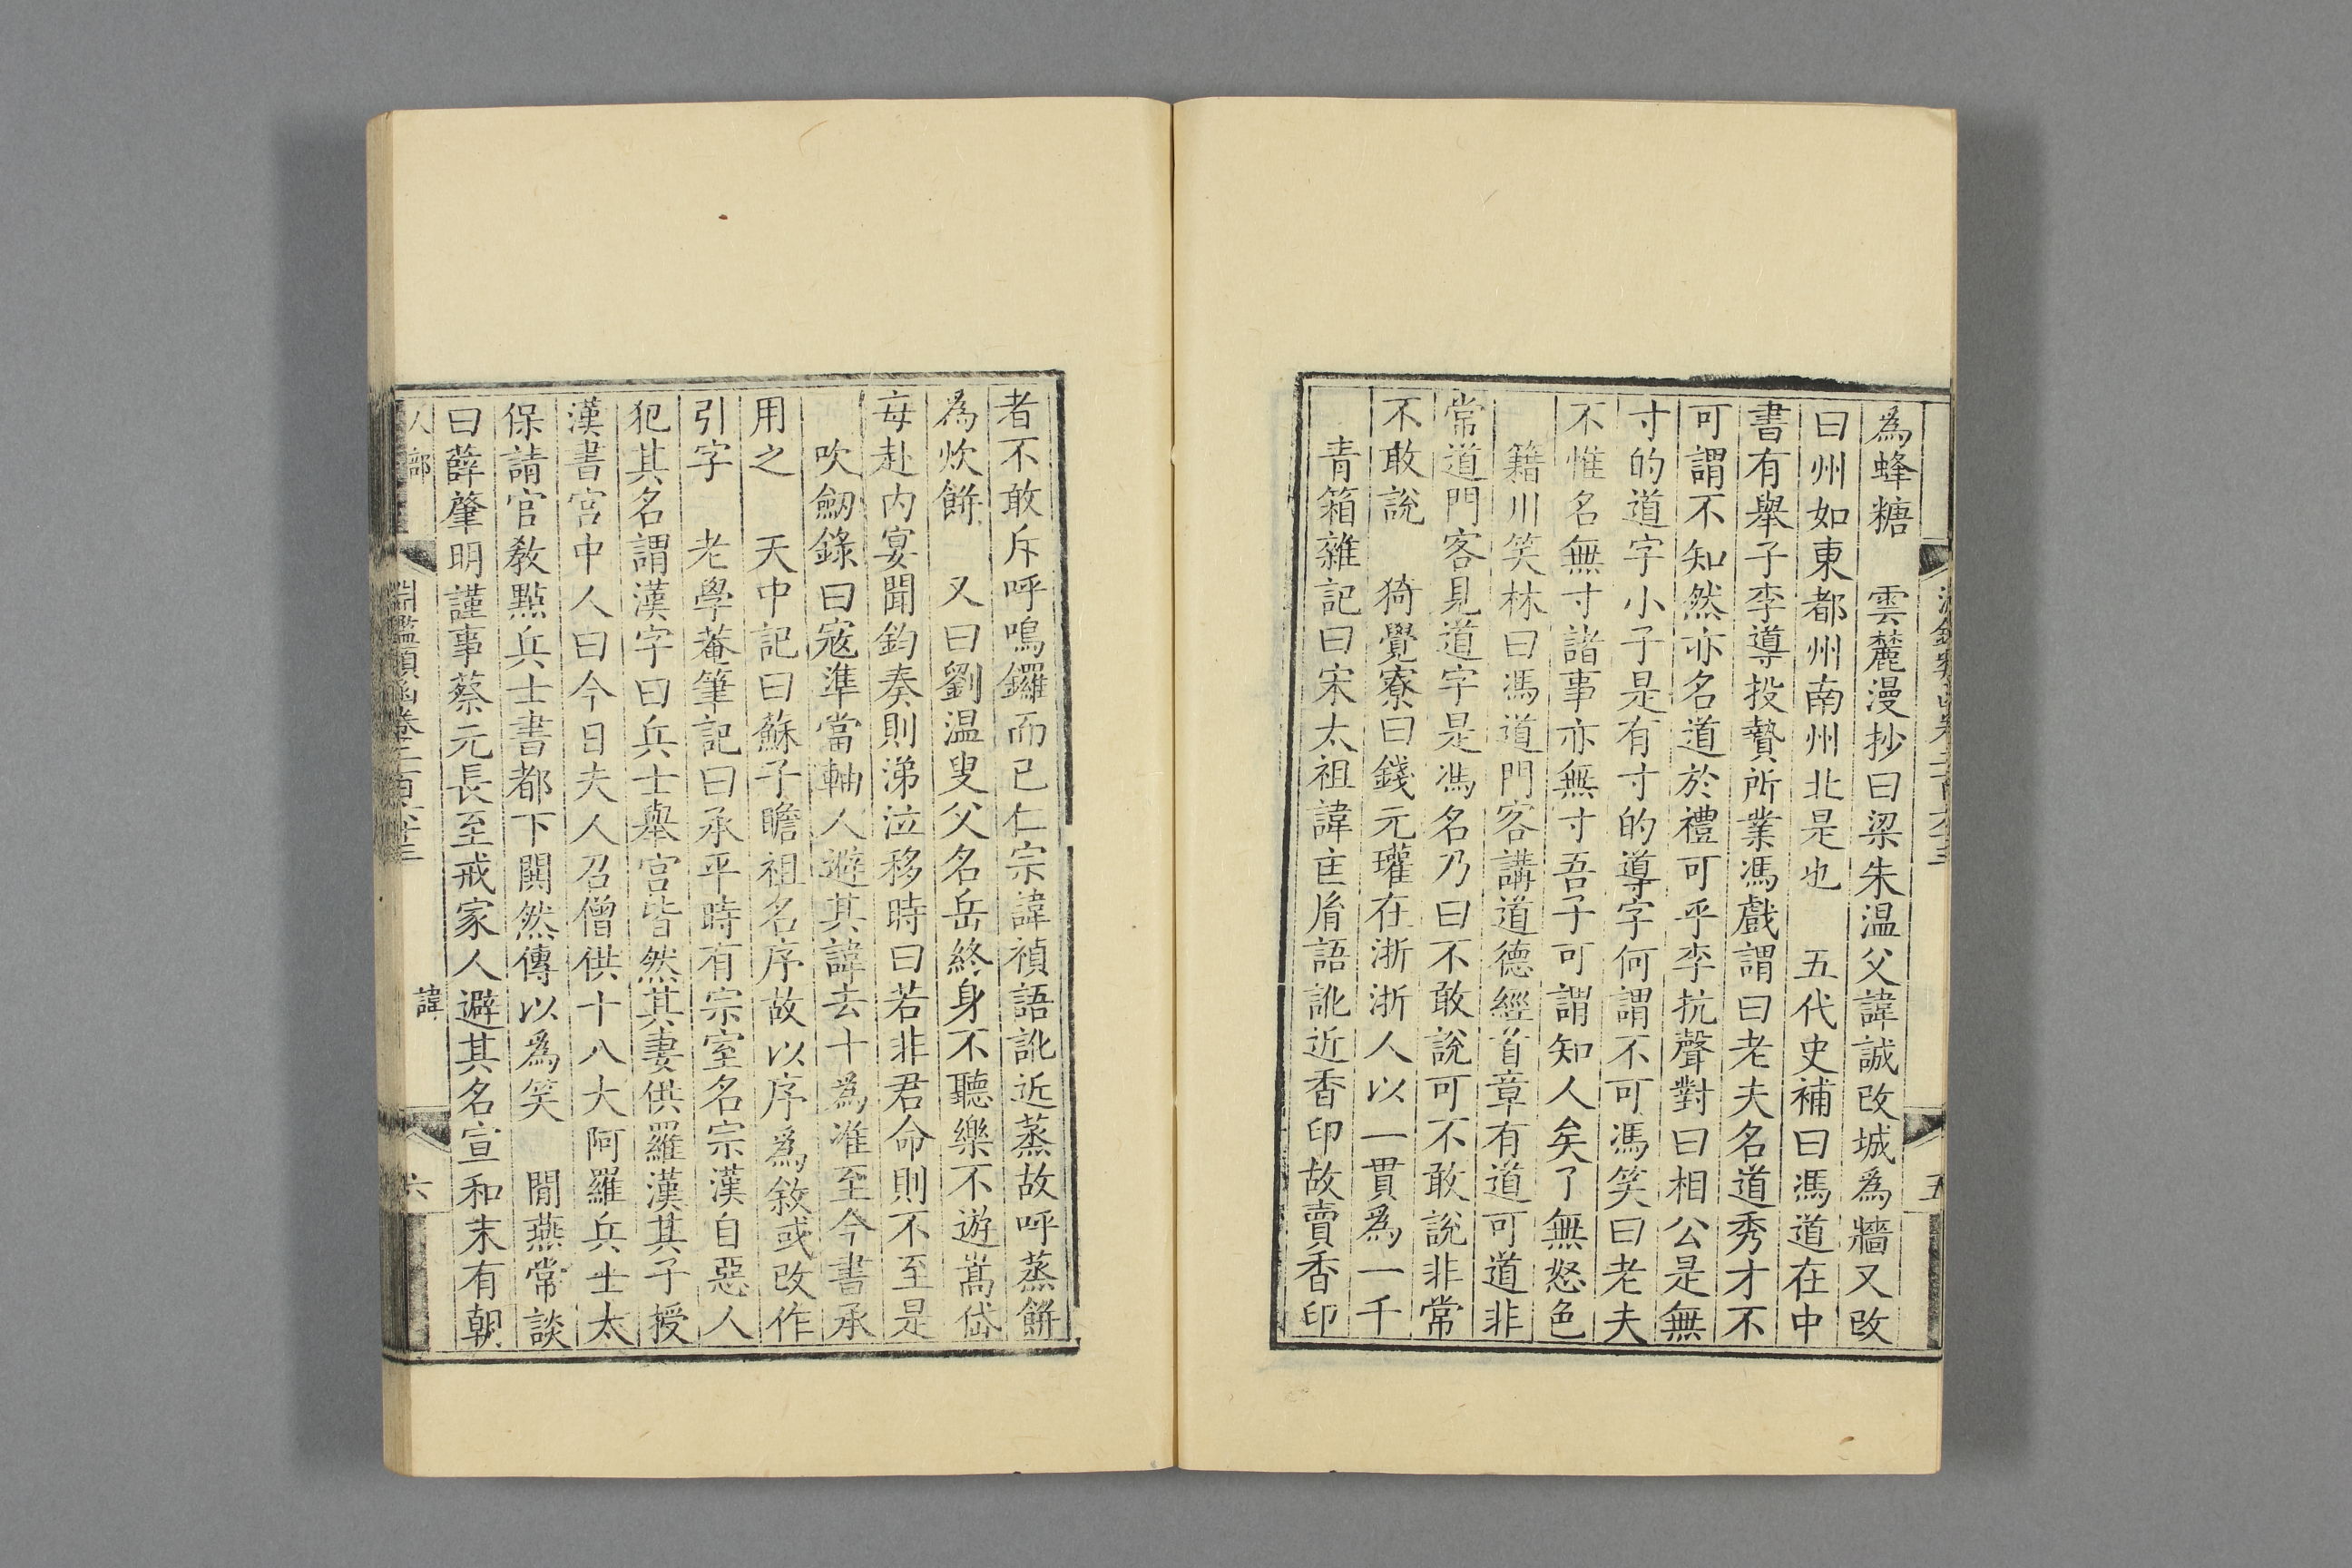 為蜂糖　雲麓漫抄曰梁朱温父諱誠改城爲牆又改
曰州如東都州南州北是也　五代史補曰馮道在中
書有舉子李導投贄所業馮戲謂曰老夫名道秀才不
可謂不知然亦名道於禮可乎李抗聲對曰相公是無
寸的道字小子是有寸的導字何謂不可馮笑曰老夫
不惟名無寸諸事亦無寸吾子可謂知人矣了無怒色
籍川笑林曰馮道門客講道德經首章有道可道非
常道門客見道字是馮名乃曰不敢說可不敢說非常
不敢說　猗覺寮曰錢元瓘在浙浙人以一貫爲一千
青箱雜記曰宋太祖諱匡胤語訛近香印故賣香印
者不敢斥呼鳴鑼而已仁宗諱禎語訛近蒸故呼蒸餅
為炊餅　又曰劉温叟父名岳終身不聽樂不遊嵩岱
每赴内宴聞鈞奏則涕泣移時曰若非君命則不至是
吹劒錄曰寇準當軸人避其諱去十爲准至今書承
用之　天中記曰蘇子瞻祖名序故以序爲敘或改作
引字　老學菴筆記曰承平時有宗室名宗漢自惡人
犯其名謂漢字曰兵士舉宫皆然其妻供羅漢其子授
漢書宮中人曰今日夫人召僧供十八大阿羅兵士太
保請官敎點兵士書都下鬨然傳以爲笑　閒燕常談
曰薛肇明謹事蔡元長至戒家人避其名宣和末有朝
人部
淵鑑類函卷二百六十三
諱
六